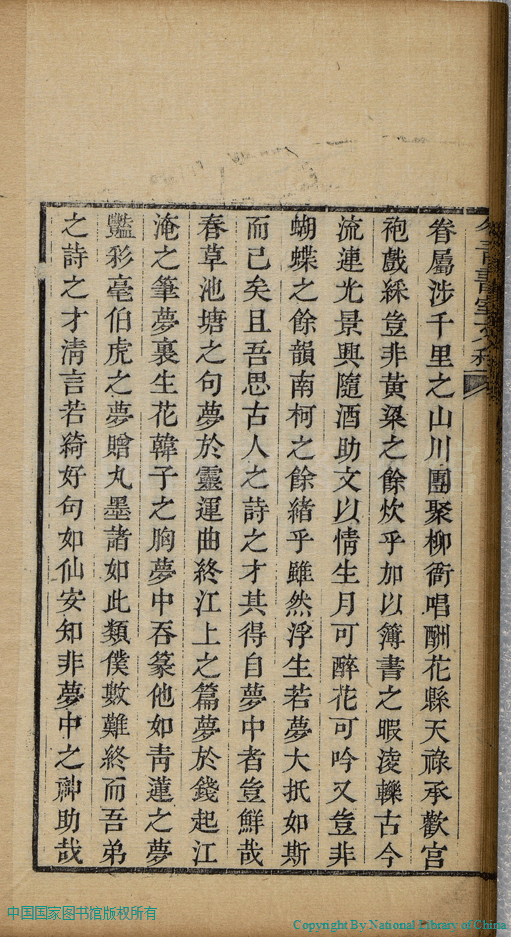 眷屬涉千里之山川團聚柳衙唱酬花縣天祿承歡宫
袍戲綵豈非黃粱之餘炊乎加以簿書之暇淩轢古今
流連光景興隨酒助文以情生月可醉花可吟又豈非
蝴蝶之餘韻南柯之餘緒乎雖然浮生若夢大抵如斯
而已矣且吾思古人之詩之才其得自夢中者豈鮮哉
春草池塘之句夢於靈運曲終江上之篇夢於錢起江
淹之筆夢裏生花韓子之胸夢中吞篆他如青蓮之夢
豔彩毫伯虎之夢贈丸墨諸如此類僕數難終而吾弟
之詩之才清言若綺好句如仙安知非夢中之神助哉
中国国家图书馆版权所有
Copyright By National Library of China